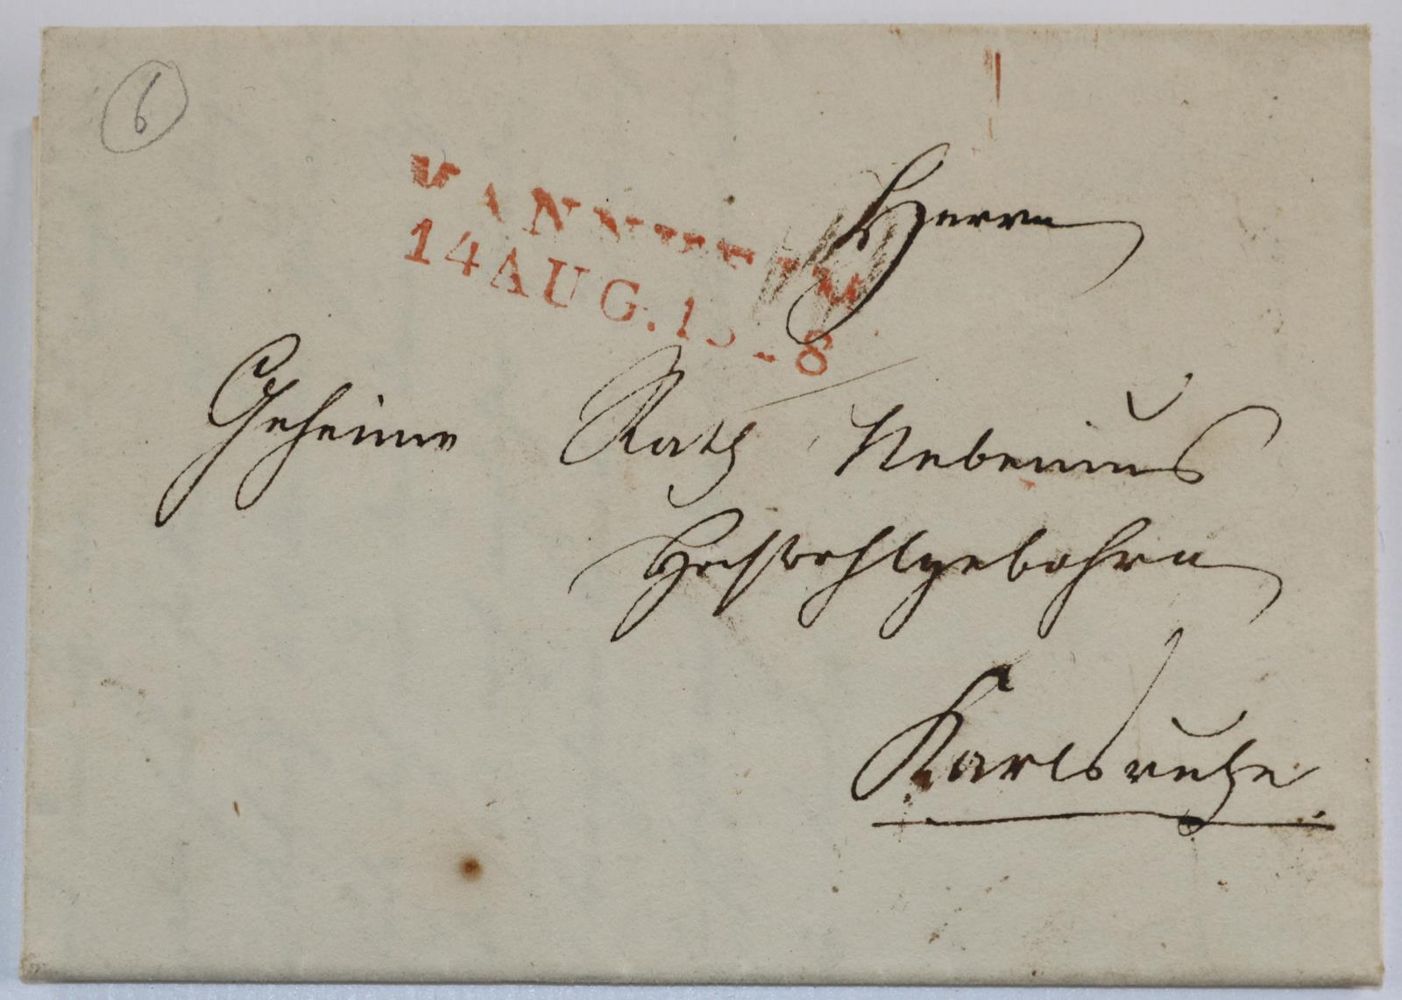 6
MANNHEIM
14 AUG. 18 8
Herrn
Geheime Rath Nebenius
Hochwohlgebohrn
Karlsruhe